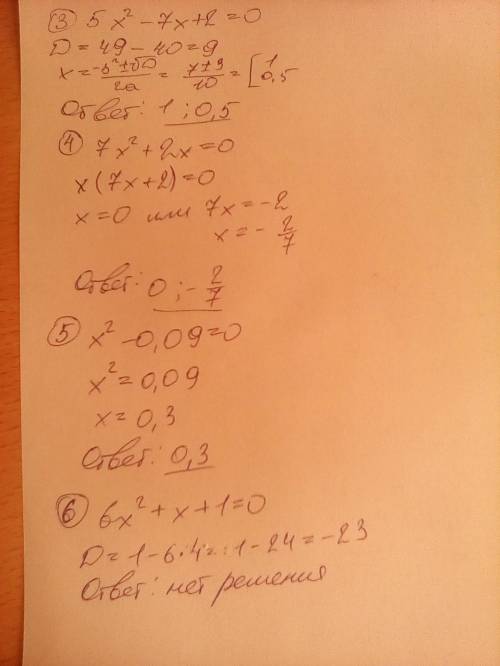 ③ 5x² - 7x + 2 = 0
D = 49 - 40 = 9
x = (-b² ± √D)/2a = (7 ± 3)/10 = [1 0,5
Ответ: 1 ; 0,5
④ 7x² + 2x = 0
x(7x + 2) = 0
x = 0 или 7x = -2
x = - 2/7
Ответ: 0 ; - 2/7
⑤ x² - 0,09 = 0
x² = 0,09
x = 0,3
Ответ: 0,3
⑥ 6x² + x + 1 = 0
D = 1 - 6·4 = 1 - 24 = -23
Ответ: нет решения